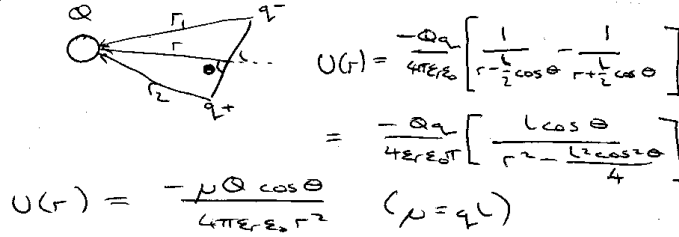 Q
q-
r₁
r
θ
l
r₂
q+
U(r) = -Qq/4πεrε₀ [ 1/(r-l/2 cosθ) - 1/(r+l/2 cosθ) ]
= -Qq/4εrε₀π [ l cosθ/(r² - l²cos²θ/4) ]
U(r) = -μQ cosθ/4πεrε₀r² (μ=ql)